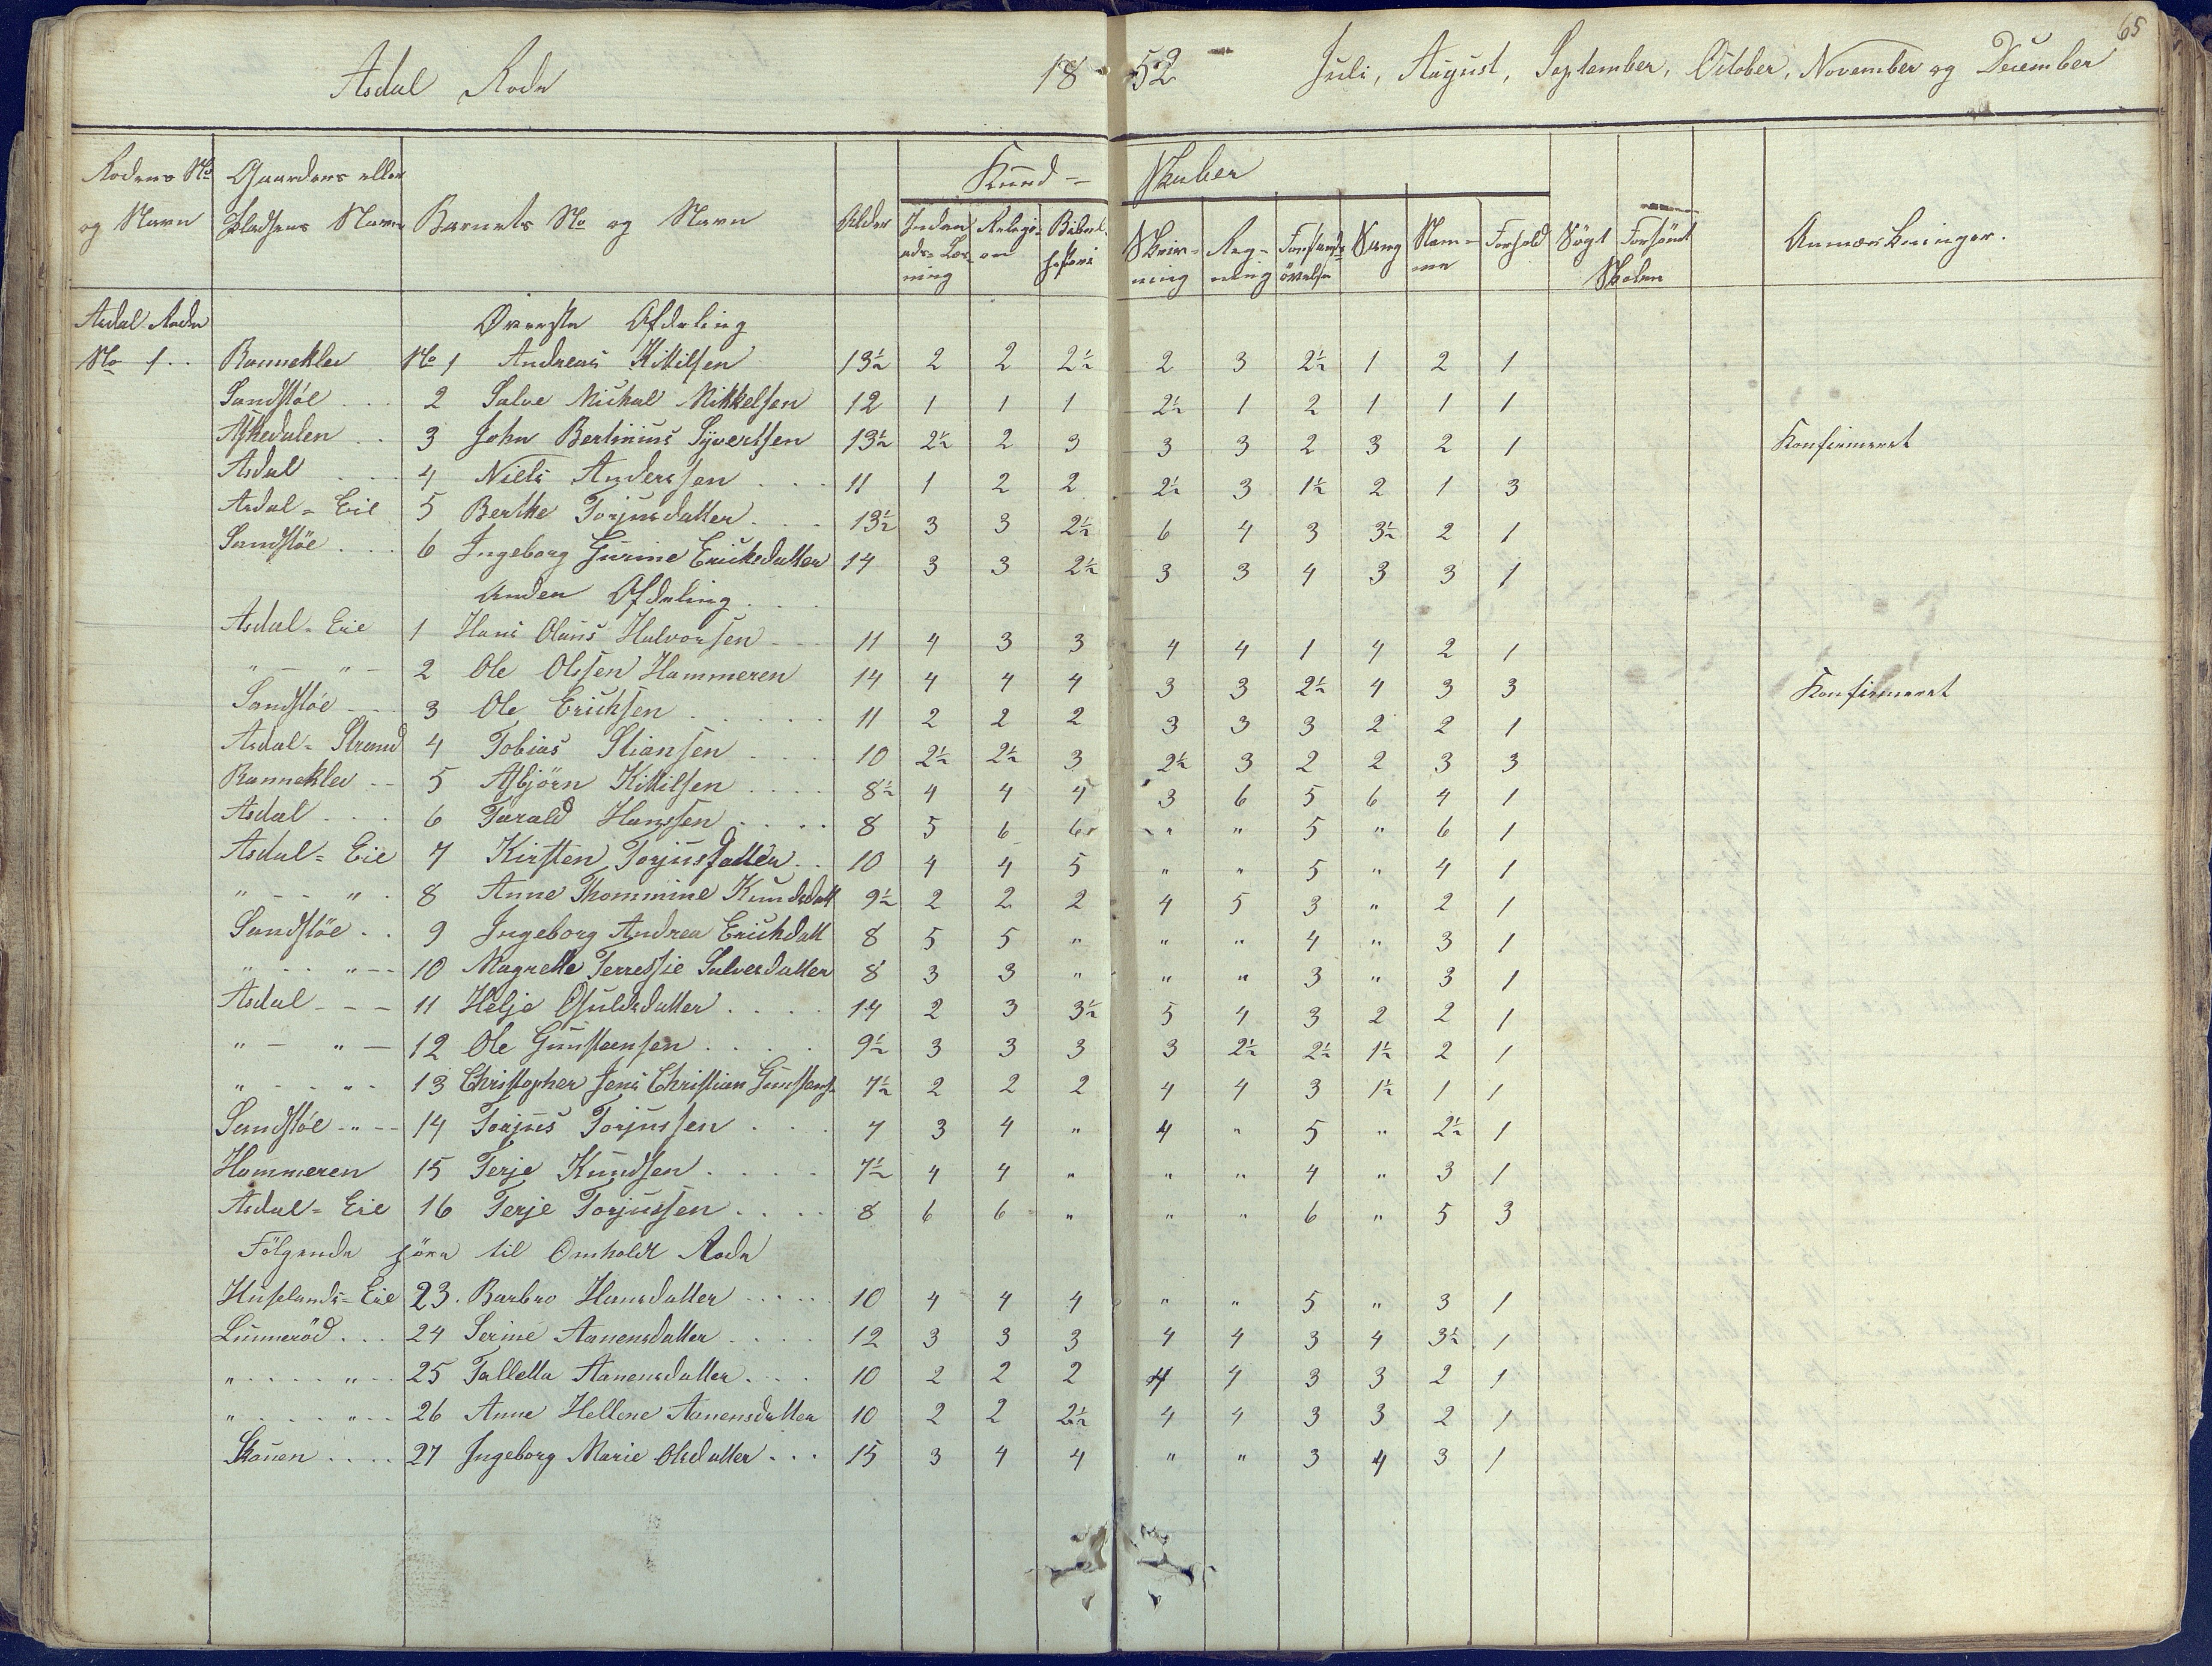 65
Asdal Rode 1852 Juli, August, September, October, November og December
Rodens No og Navn | Gaardens eller Pladsens Navn | Barnets No og Navn | Alder | Kundskaber | Søgt | Forsømt | Anmærkninger.
Inden ads-Læsning | Religion | Bibelhistorie | Skrivning | Regning | Forstandsøvelse | Sang | Nemme | Forhold | Skolen
Asdal Rode Øverste Afdeling
No 1 Ranneklev No 1 Andreas Kittilsen 13½ 2 2 2½ 2 3 2½ 1 2 1
Sandstøe 2 Salve Michal Mikkelsen 12 1 1 1 2½ 1 2 1 1 1
Askedalen 3 John Bertinius Syvertsen 13½ 2½ 2 3 3 3 2 3 2 1 Konfirmeret
Asdal 4 Niels Anderssen 11 1 2 2 2½ 3 1½ 2 1 3
Asdal-Eie 5 Berthe Torjusdatter 13½ 3 3 2½ 6 4 3 3½ 2 1
Sandstøe 6 Ingeborg Gurine Ericksdatter 14 3 3 2½ 3 3 4 3 3 1
Anden Afdeling
Asdal-Eie 1 Hans Olaus Halvorsen 11 4 3 3 4 4 1 4 2 1
" — " — 2 Ole Olssen Hammeren 14 4 4 4 3 3 2½ 4 3 3 Konfirmeret
Sandstøe 3 Ole Erichsen 11 2 2 2 3 3 3 2 2 1
Asdal-Strand 4 Tobias Stiansen 10 2½ 2½ 3 2½ 3 2 2 3 3
Ranneklev 5 Asbjörn Kittilsen 8½ 4 4 4 3 6 5 6 4 1
Asdal 6 Tarald Hanssen 8 5 6 6 " " 5 " 6 1
Asdal-Eie 7 Kirsten Torjusdatter 10 4 4 5 " " 5 " 4 1
" - - " 8 Anne Thommine Knudsdatt 9½ 2 2 2 4 5 3 " 2 1
Sandstøe 9 Ingeborg Andrea Erichdatt 8 5 5 " " " 4 " 3 1
" - - " 10 Magrethe Terressie Salvesdatter 8 3 3 " " " 3 " 3 1
Asdal 11 Helje Osuldsdatter 14 2 3 3½ 5 4 3 2 2 1
" — " — 12 Ole Gunstensen 9½ 3 3 3 3 2½ 2½ 1½ 2 1
" - - " 13 Christopher Jens Christian Gunstens. 7½ 2 2 2 4 4 3 1½ 1 1
Sandstøe 14 Torjus Torjussen 7 3 4 " 4 " 5 " 2½ 1
Hammeren 15 Terje Knudsen 7½ 4 4 " " " 4 " 3 1
Asdal-Eie 16 Terje Torjussen 8 6 6 " " " 6 " 5 3
Fölgende höre til Omholdt Rode
Huselands-Eie 23. Barbro Hansdatter 10 4 4 4 " " 5 " 3 1
Lunneröd 24 Serine Aanensdatter 12 3 3 3 4 4 3 4 3½ 1
" " 25 Talletta Aanensdatter 10 2 2 2 4 4 3 3 2 1
" " 26 Anne Hellene Aanensdatter 10 2 2 2½ 4 4 3 3 2 1
Skouen 27 Ingeborg Marie Olsdatter 15 3 4 4 " " 3 4 3 1